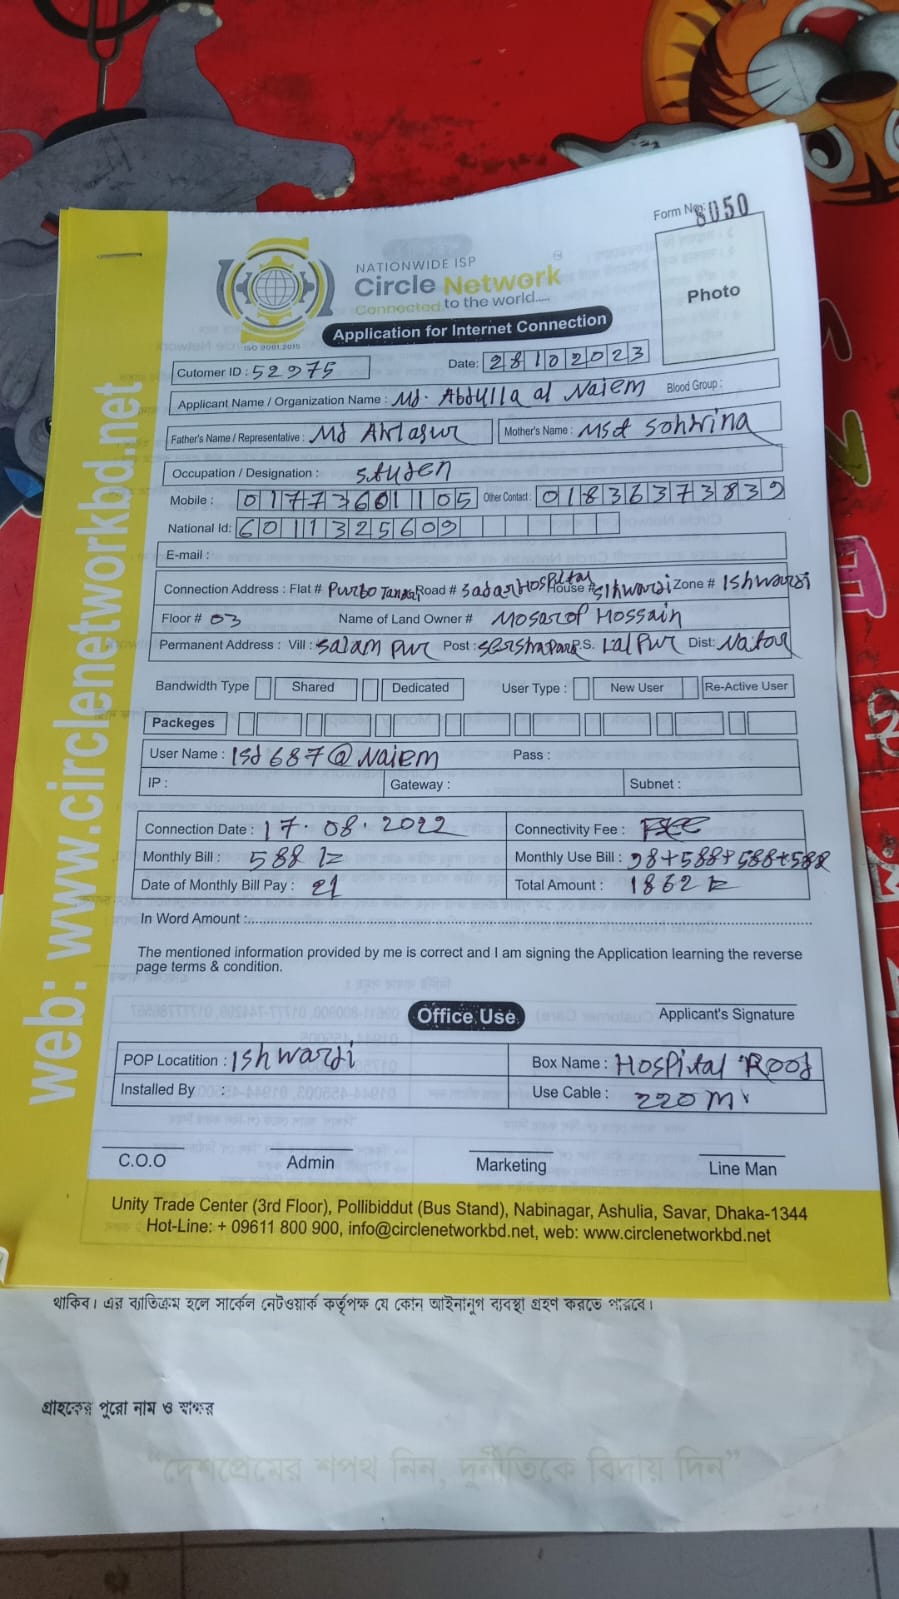 Form No: 8050
NATIONWIDE ISP
Circle Network
Connected to the world.....
ISO 9001:2015
Application for Internet Connection
Photo
Cutomer ID : 52975
Date: 28102023
Applicant Name / Organization Name : Md. Abdulla al Naiem Blood Group :
Father's Name / Representative : Md
Mother's Name : Mst
Occupation / Designation : studen
Mobile : 01773601105 Other Contact : 01836373839
National Id: 6011325609
E-mail :
Connection Address : Flat # Purbo Road # Sadar Hospital House # Zone # Ishwardi
Floor # 03 Name of Land Owner # Mosarof Hossain
Permanent Address : Vill : Salam pur Post : P.S. Lalpur Dist: Nator
Bandwidth Type Shared Dedicated User Type : New User Re-Active User
Packeges
User Name : ISd687@Naiem Pass :
IP : Gateway : Subnet :
Connection Date : 17.08.2022 Connectivity Fee :
Monthly Bill : 588 Monthly Use Bill : 98+588+588+588
Date of Monthly Bill Pay : 21 Total Amount : 1862
In Word Amount :
The mentioned information provided by me is correct and I am signing the Application learning the reverse
page terms & condition.
Office Use
Applicant's Signature
POP Locatition : Ishwardi Box Name : Hospital Rood
Installed By : Use Cable : 220 m
C.O.O Admin Marketing Line Man
Unity Trade Center (3rd Floor), Pollibiddut (Bus Stand), Nabinagar, Ashulia, Savar, Dhaka-1344
Hot-Line: + 09611 800 900, info@circlenetworkbd.net, web: www.circlenetworkbd.net
web: www.circlenetworkbd.net
থাকিব। এর ব্যতিক্রম হলে সার্কেল নেটওয়ার্ক কর্তৃপক্ষ যে কোন আইনানুগ ব্যবস্থা গ্রহণ করতে পারবে।
গ্রাহকের পুরো নাম ও স্বাক্ষর
“দেশপ্রেমের শপথ নিন, দুর্নীতিকে বিদায় দিন”